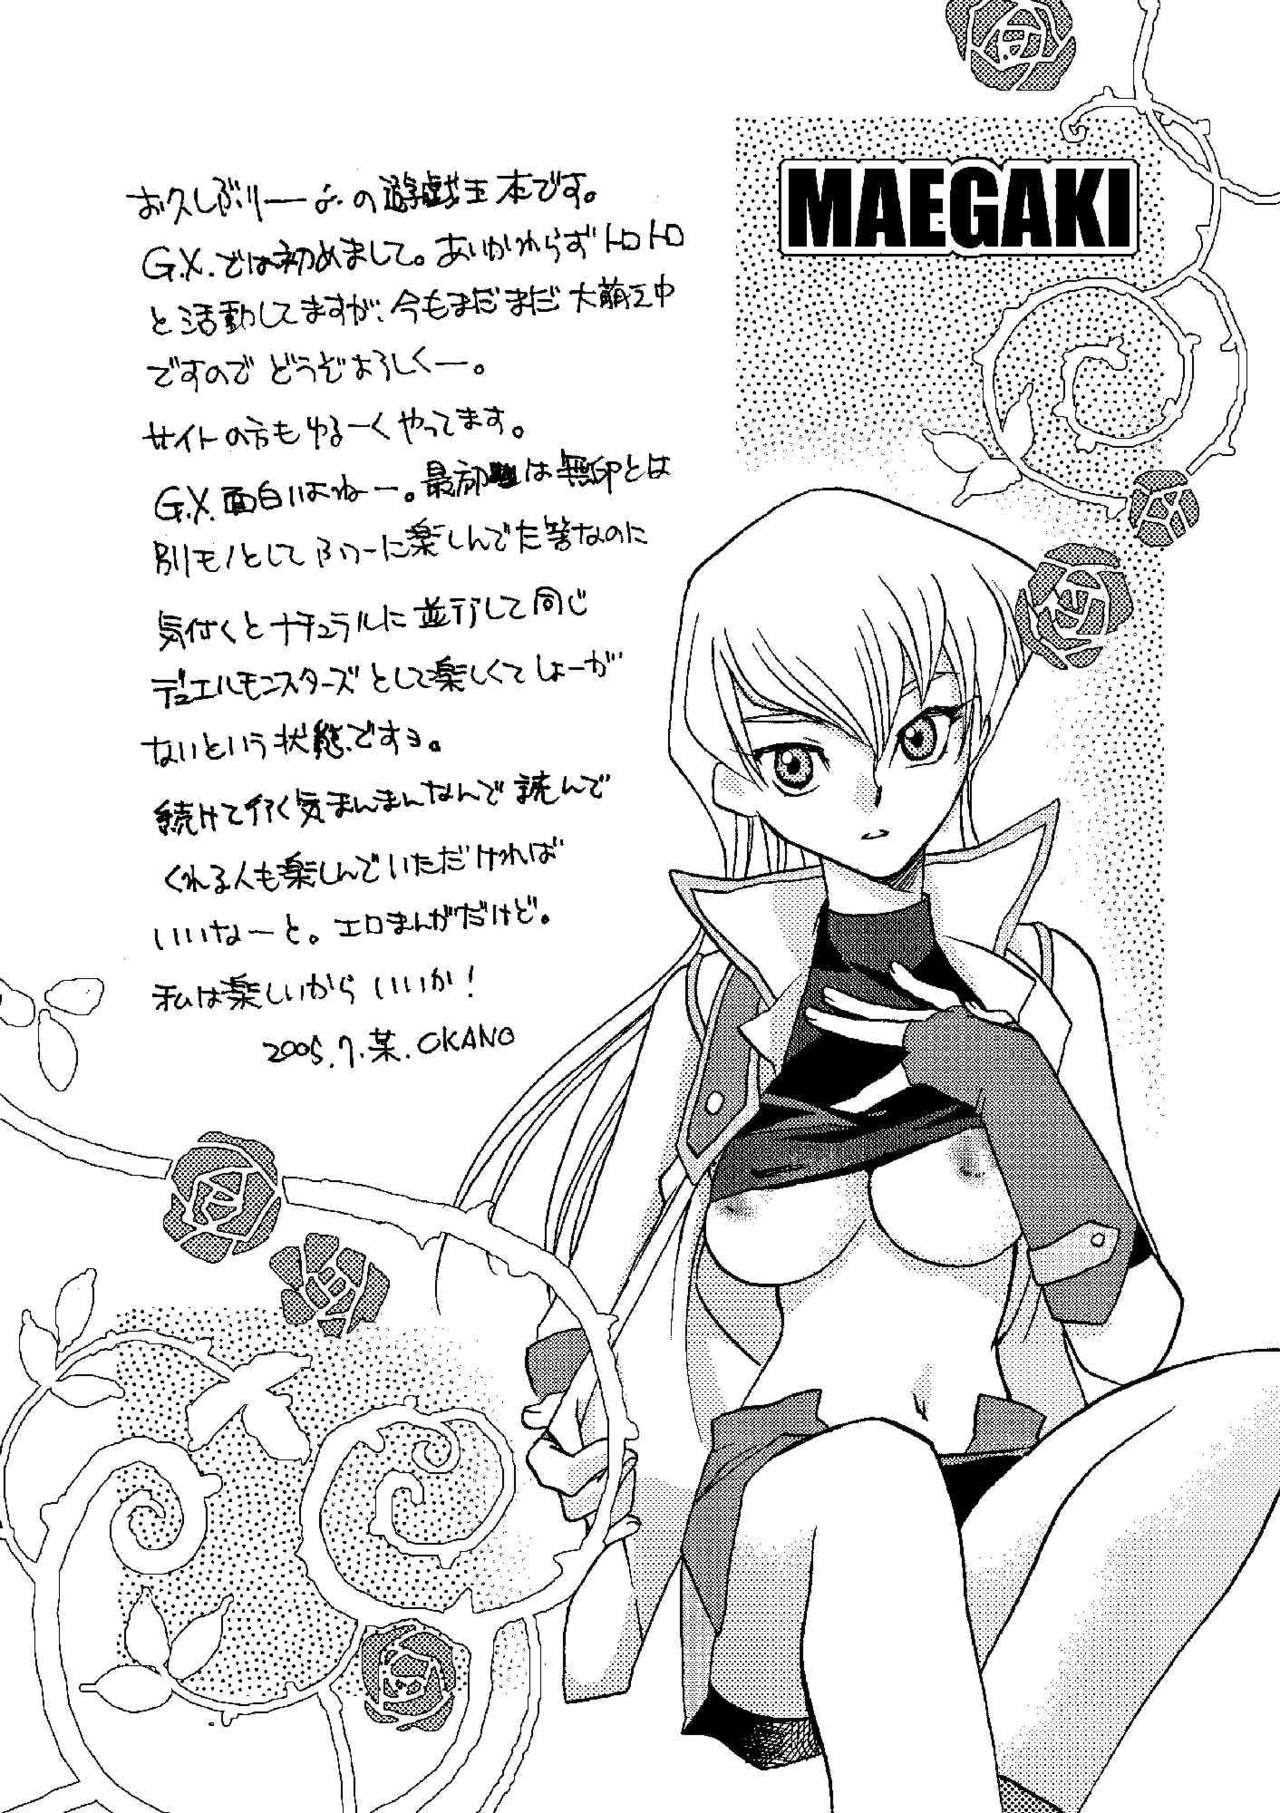 MAEGAKI
お久しぶりーーな の遊戯王本です。
G.X.では初めまして。あいかわらずトロトロ
と活動してますが、今もまだまだ大萌え中
ですので どうぞよろしくー。
サイトの方もゆるーくやってます。
G.X.面白いよねー。最初は無印とは
別モノとして ふつーに楽しんでた筈なのに
気付くとナチュラルに並行して同じ
デュエルモンスターズとして楽しくてしょーが
ないという状態ですヨ。
続けて行く気まんまんなんで読んで
くれる人も楽しんでいただければ
いいなーと。エロまんがだけど。
私は楽しいから いいか!
2005.7.某.OKANO